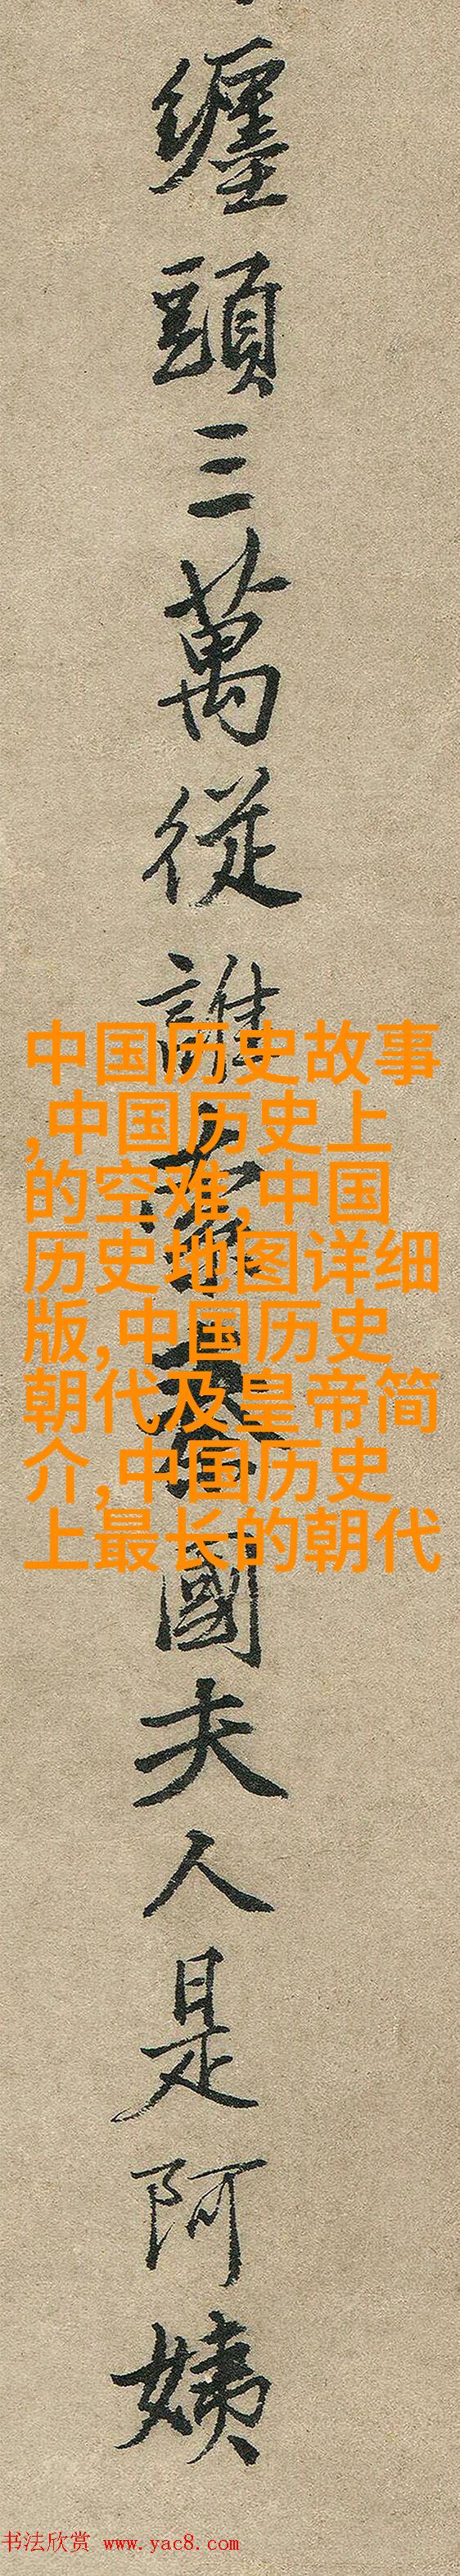 纏頭三萬從誰索秦國夫人是阿姨
中国历史故事
,中国历史上
的空难,中国
历史地图详细
版,中国历史
朝代及皇帝简
介,中国历史
上最长的朝代
书法欣赏 www.yac8.com